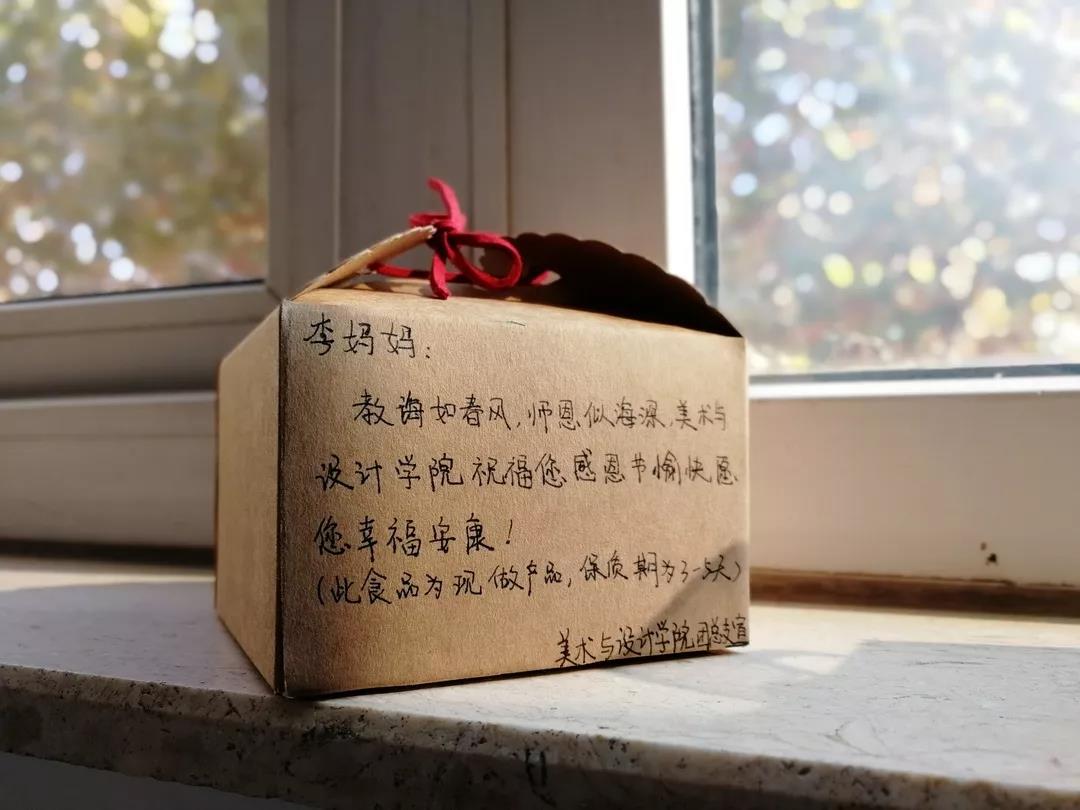 李妈妈：
教诲如春风，师恩似海深，美术与
设计学院祝福您感恩节愉快愿
您幸福安康！
（此食品为现做产品，保质期为3-5天）
美术与设计学院团总支宣